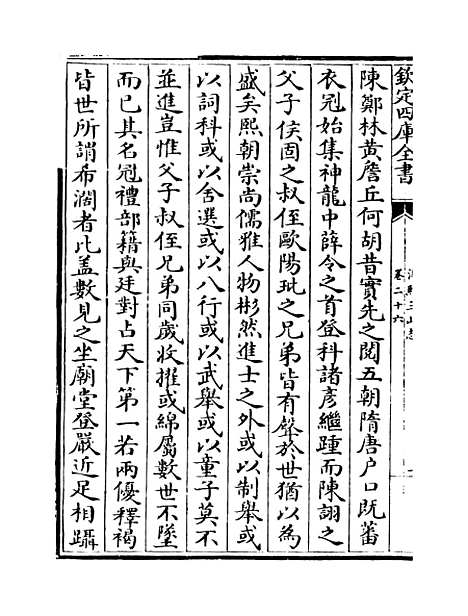 欽定四庫全書
卷二十六
陳鄭林黃詹丘何胡昔實先之閱五朝隋唐户口既蕃
衣冠始集神龍中薛令之首登科諸彦繼踵而陳詡之
父子侯固之叔侄歐陽玭之兄弟皆有聲於世猶以為
盛矣熙朝崇尚儒雅人物彬然進士之外或以制舉或
以詞科或以舍選或以八行或以武舉或以童子莫不
並進豈惟父子叔侄兄弟同歲收擢或綿屬數世不墜
而已其名冠禮部籍與廷對占天下第一若兩優釋褐
皆世所誚布濶者比蓋數見之坐廟堂登嚴近足相躡